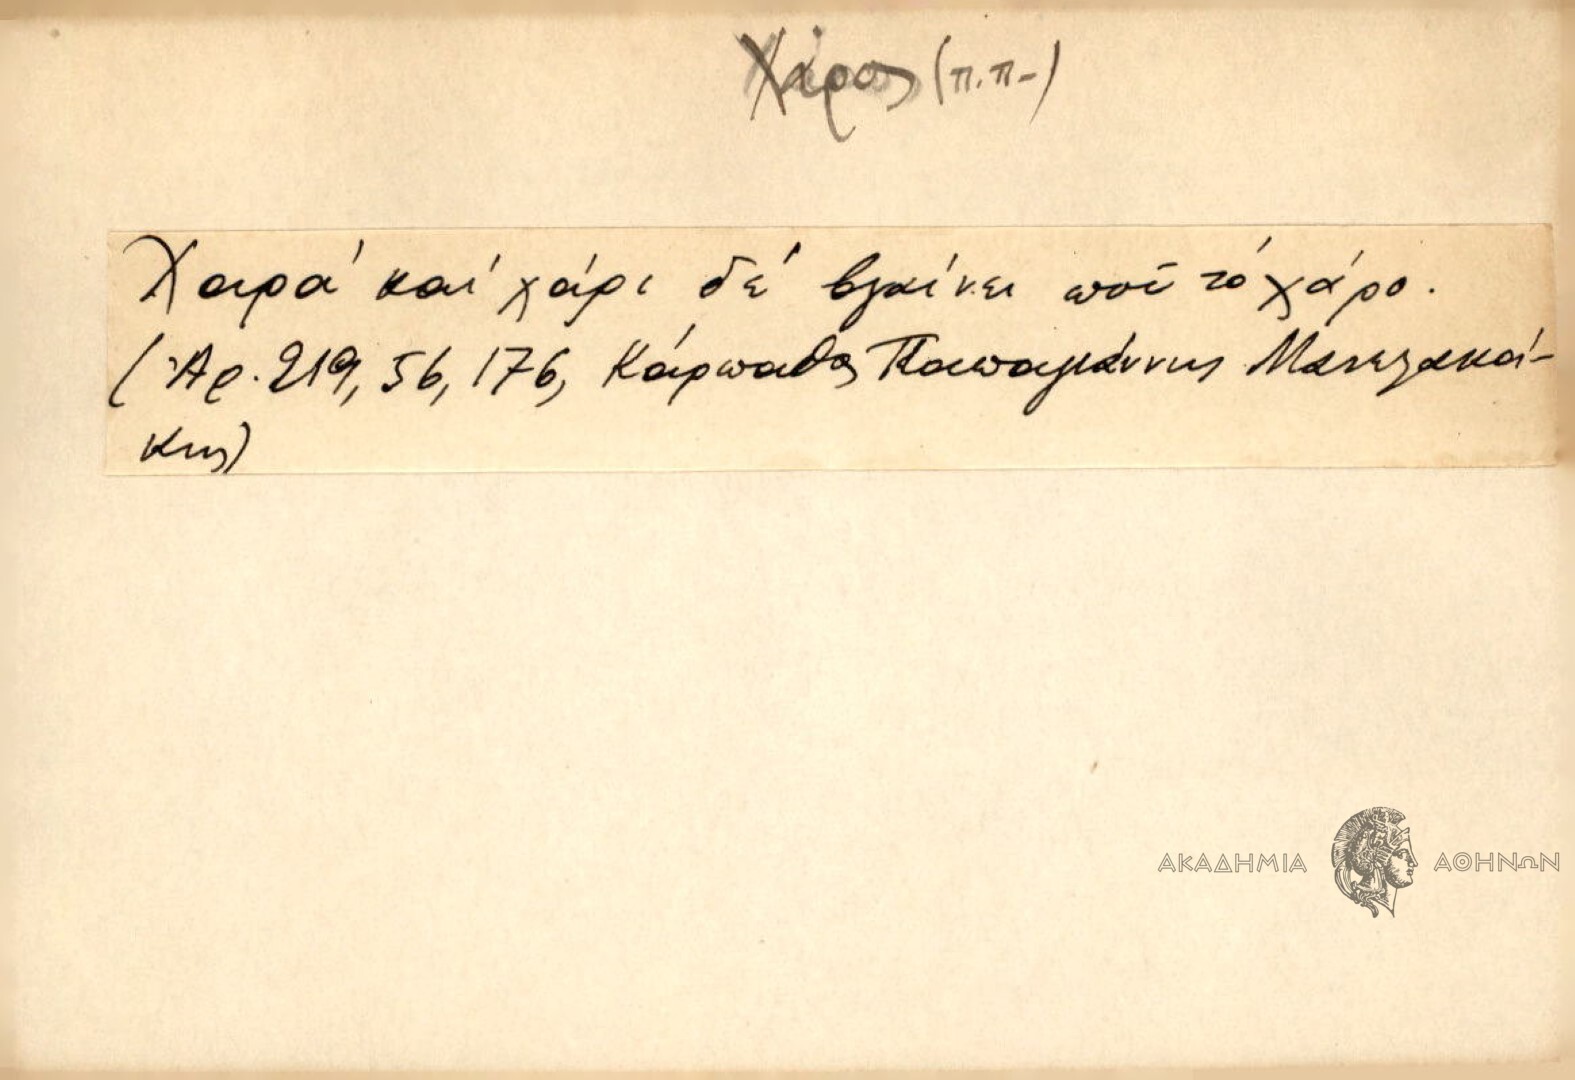 Χάρος (π.π-)
Χαρά καί χάρι δέ βγαίνει ποῦ τό χάρο.
(Ἀρ. 219, 56, 176, Κάρπαθος Παπαγιάννης
κης)
ΑΚΑΔΗΜΙΑ ΑΘΗΝΩΝ